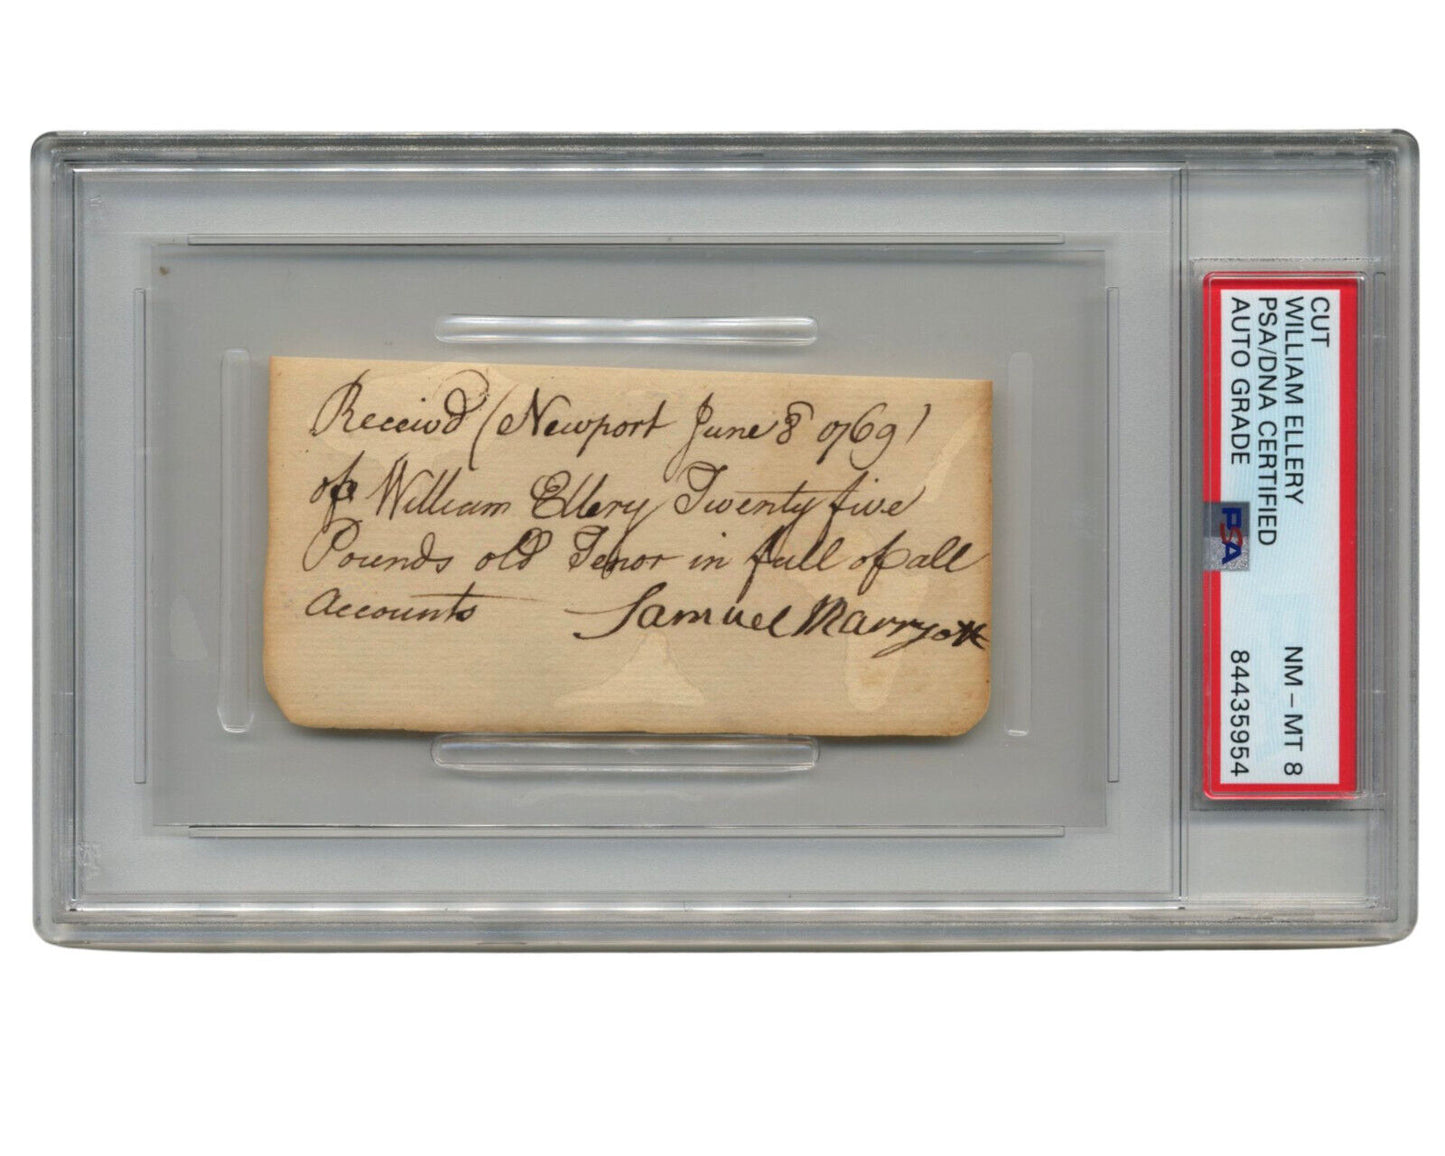 Receivd (Newport June 8 1769)
of William Ellery Twenty five
Pounds old Tenor in full of all
accounts Samuel Marryott
CUT
WILLIAM ELLERY NM - MT 8
PSA/DNA CERTIFIED
AUTO GRADE 84435954
PSA